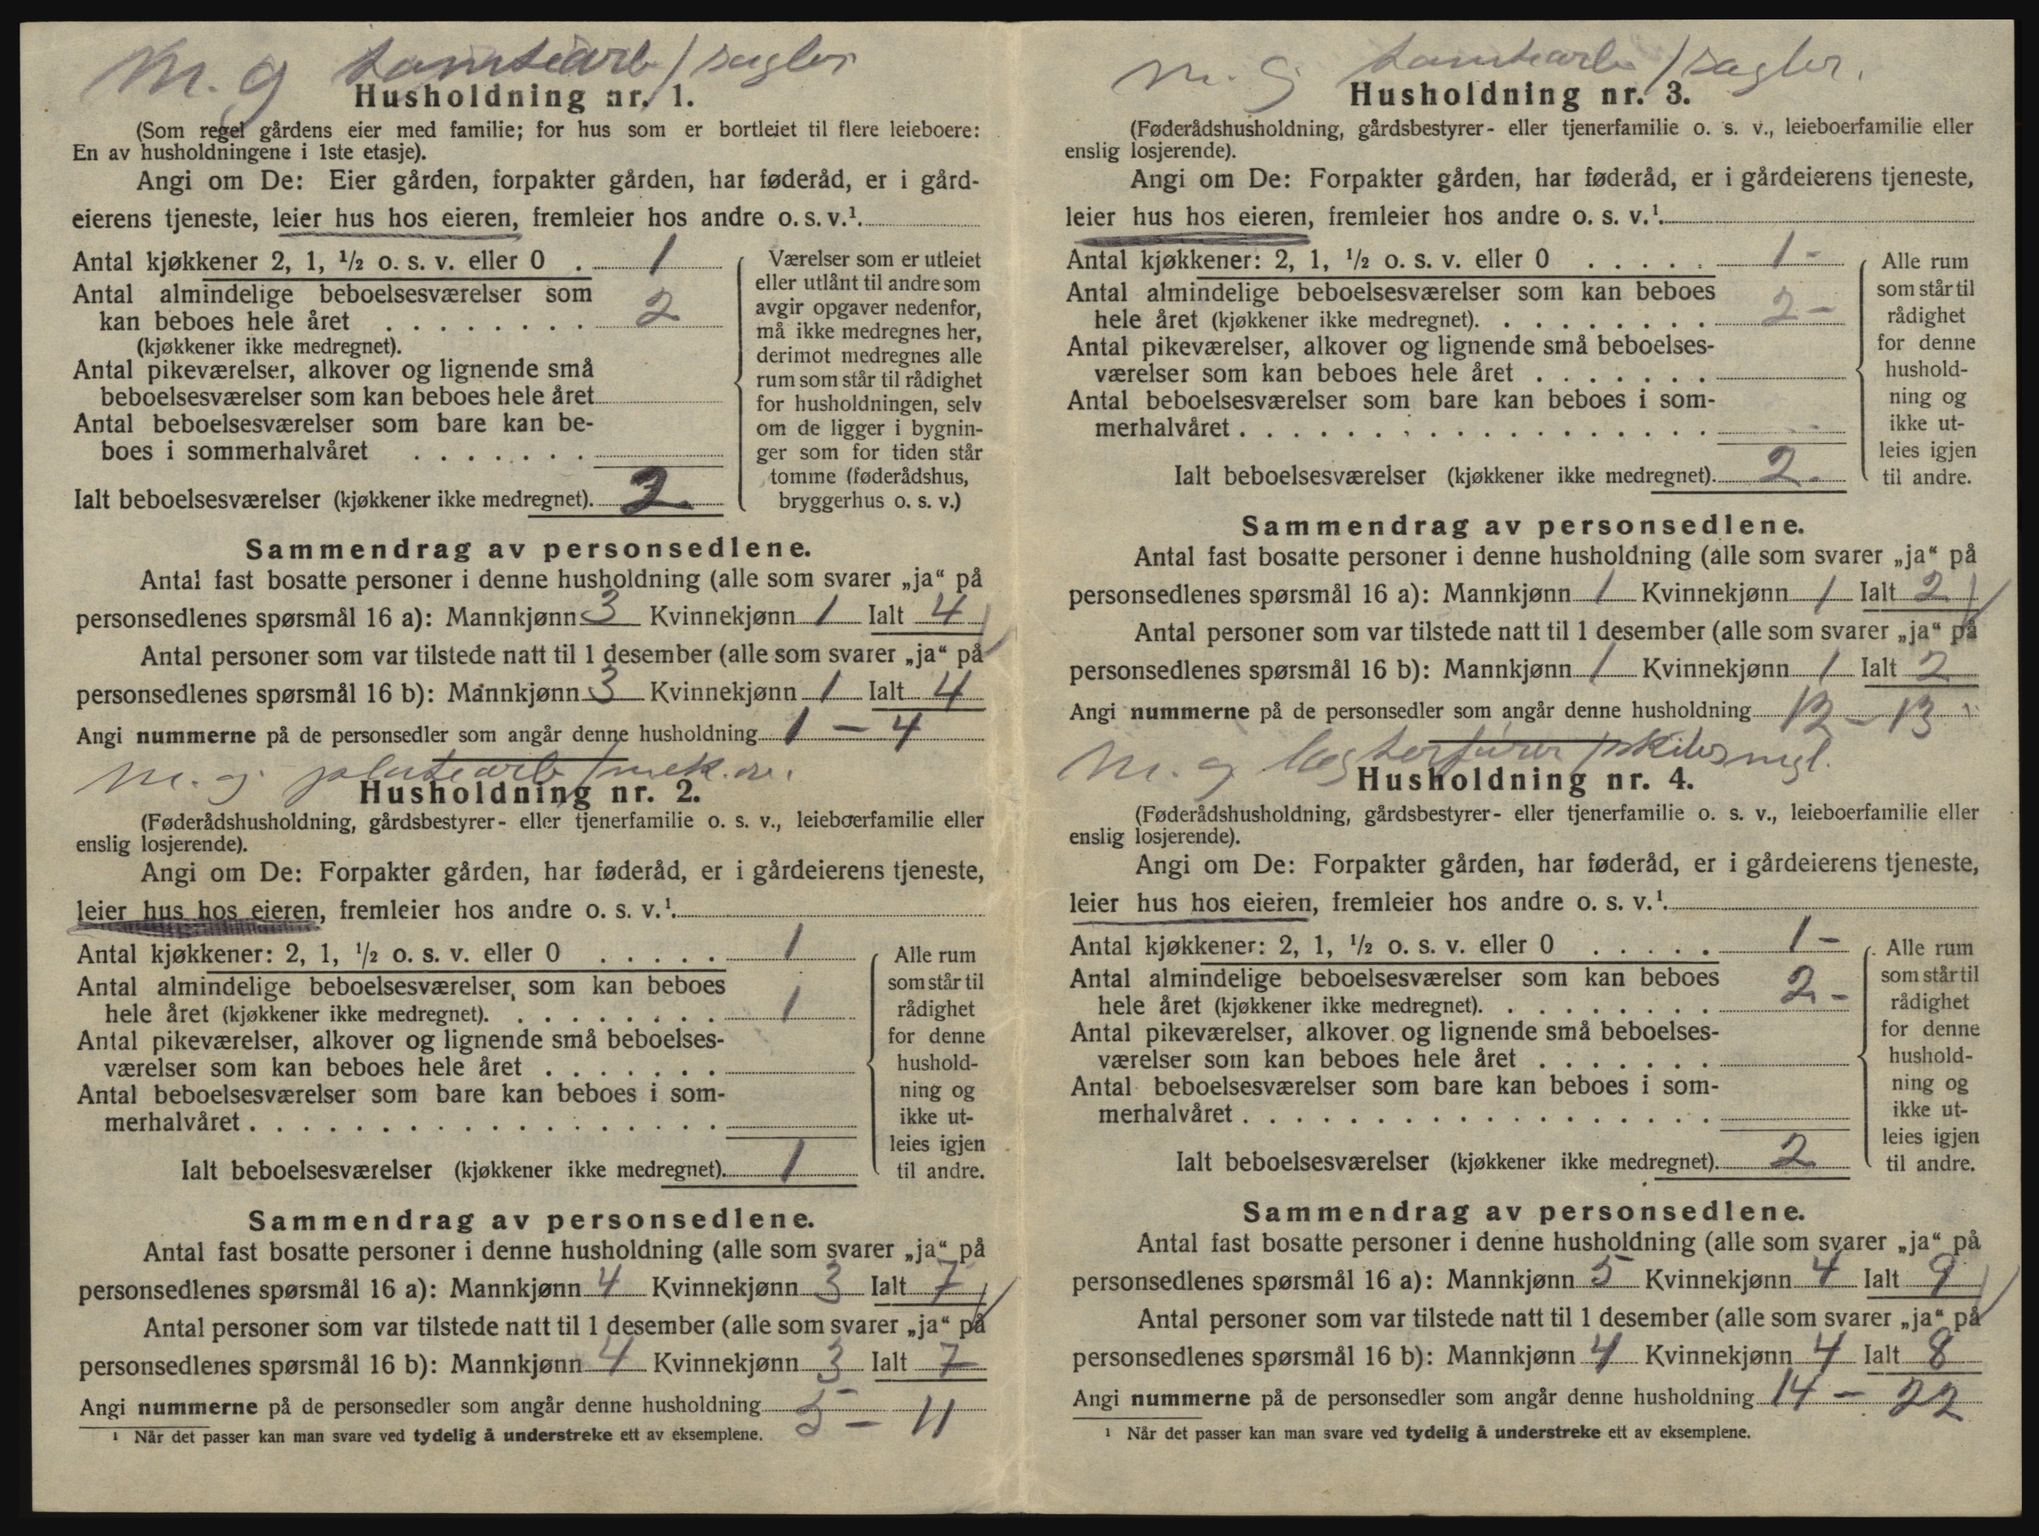 M. g tomtearb / sagbr
Husholdning nr. 1.
(Som regel gårdens eier med familie; for hus som er bortleiet til flere leieboere:
En av husholdningene i 1ste etasje).
Angi om De: Eier gården, forpakter gården, har føderåd, er i gård-
eierens tjeneste, leier hus hos eieren, fremleier hos andre o. s. v.¹.
Antal kjøkkener 2, 1, ½ o. s. v. eller 0 . 1
Antal almindelige beboelsesværelser som
kan beboes hele året . . . . . . . . 2
(kjøkkener ikke medregnet).
Antal pikeværelser, alkover og lignende små
beboelsesværelser som kan beboes hele året
Antal beboelsesværelser som bare kan be-
boes i sommerhalvåret . . . . . . .
Ialt beboelsesværelser (kjøkkener ikke medregnet). 2
Værelser som er utleiet
eller utlånt til andre som
avgir opgaver nedenfor,
må ikke medregnes her,
derimot medregnes alle
rum som står til rådighet
for husholdningen, selv
om de ligger i bygnin-
ger som for tiden står
tomme (føderådshus,
bryggerhus o. s. v.)
Sammendrag av personsedlene.
Antal fast bosatte personer i denne husholdning (alle som svarer „ja“ på
personsedlenes spørsmål 16 a): Mannkjønn 3 Kvinnekjønn 1 Ialt 4
Antal personer som var tilstede natt til 1 desember (alle som svarer „ja“ på
personsedlenes spørsmål 16 b): Mannkjønn 3 Kvinnekjønn 1 Ialt 4
Angi nummerne på de personsedler som angår denne husholdning 1 - 4
M. g platearb / mek.
Husholdning nr. 2.
(Føderådshusholdning, gårdsbestyrer- eller tjenerfamilie o. s. v., leieboerfamilie eller
enslig losjerende).
Angi om De: Forpakter gården, har føderåd, er i gårdeierens tjeneste,
leier hus hos eieren, fremleier hos andre o. s. v.¹.
Antal kjøkkener: 2, 1, ½ o. s. v. eller 0 . . . . . 1
Antal almindelige beboelsesværelser som kan beboes
hele året (kjøkkener ikke medregnet). . . . . . . . . 1
Antal pikeværelser, alkover og lignende små beboelses-
værelser som kan beboes hele året . . . . . . .
Antal beboelsesværelser som bare kan beboes i som-
merhalvåret . . . . . . . . . . . . . . . . . .
Ialt beboelsesværelser (kjøkkener ikke medregnet). 1
Alle rum
som står til
rådighet
for denne
hushold-
ning og
ikke ut-
leies igjen
til andre.
Sammendrag av personsedlene.
Antal fast bosatte personer i denne husholdning (alle som svarer „ja“ på
personsedlenes spørsmål 16 a): Mannkjønn 4 Kvinnekjønn 3 Ialt 7
Antal personer som var tilstede natt til 1 desember (alle som svarer „ja“ på
personsedlenes spørsmål 16 b): Mannkjønn 4 Kvinnekjønn 3 Ialt 7
Angi nummerne på de personsedler som angår denne husholdning 5 - 11
¹ Når det passer kan man svare ved tydelig å understreke ett av eksemplene.
M. g tomtearb / sagbr.
Husholdning nr. 3.
(Føderådshusholdning, gårdsbestyrer- eller tjenerfamilie o. s. v., leieboerfamilie eller
enslig losjerende).
Angi om De: Forpakter gården, har føderåd, er i gårdeierens tjeneste,
leier hus hos eieren, fremleier hos andre o. s. v.¹.
Antal kjøkkener: 2, 1, ½ o. s. v. eller 0 . . . . . 1 -
Antal almindelige beboelsesværelser som kan beboes
hele året (kjøkkener ikke medregnet). . . . . . . . . 2 -
Antal pikeværelser, alkover og lignende små beboelses-
værelser som kan beboes hele året . . . . . . .
Antal beboelsesværelser som bare kan beboes i som-
merhalvåret . . . . . . . . . . . . . . . . . .
Ialt beboelsesværelser (kjøkkener ikke medregnet). 2 -
Alle rum
som står til
rådighet
for denne
hushold-
ning og
ikke ut-
leies igjen
til andre.
Sammendrag av personsedlene.
Antal fast bosatte personer i denne husholdning (alle som svarer „ja“ på
personsedlenes spørsmål 16 a): Mannkjønn 1 Kvinnekjønn 1 Ialt 2
Antal personer som var tilstede natt til 1 desember (alle som svarer „ja“ på
personsedlenes spørsmål 16 b): Mannkjønn 1 Kvinnekjønn 1 Ialt 2
Angi nummerne på de personsedler som angår denne husholdning 12 - 13
M. g /
Husholdning nr. 4.
(Føderådshusholdning, gårdsbestyrer- eller tjenerfamilie o. s. v., leieboerfamilie eller
enslig losjerende).
Angi om De: Forpakter gården, har føderåd, er i gårdeierens tjeneste,
leier hus hos eieren, fremleier hos andre o. s. v.¹.
Antal kjøkkener: 2, 1, ½ o. s. v. eller 0 . . . . . 1 -
Antal almindelige beboelsesværelser som kan beboes
hele året (kjøkkener ikke medregnet). . . . . . . . . 2 -
Antal pikeværelser, alkover og lignende små beboelses-
værelser som kan beboes hele året . . . . . . .
Antal beboelsesværelser som bare kan beboes i som-
merhalvåret . . . . . . . . . . . . . . . . . .
Ialt beboelsesværelser (kjøkkener ikke medregnet). 2
Alle rum
som står til
rådighet
for denne
hushold-
ning og
ikke ut-
leies igjen
til andre.
Sammendrag av personsedlene.
Antal fast bosatte personer i denne husholdning (alle som svarer „ja“ på
personsedlenes spørsmål 16 a): Mannkjønn 5 Kvinnekjønn 4 Ialt 9
Antal personer som var tilstede natt til 1 desember (alle som svarer „ja“ på
personsedlenes spørsmål 16 b): Mannkjønn 4 Kvinnekjønn 4 Ialt 8
Angi nummerne på de personsedler som angår denne husholdning 14 - 22
¹ Når det passer kan man svare ved tydelig å understreke ett av eksemplene.